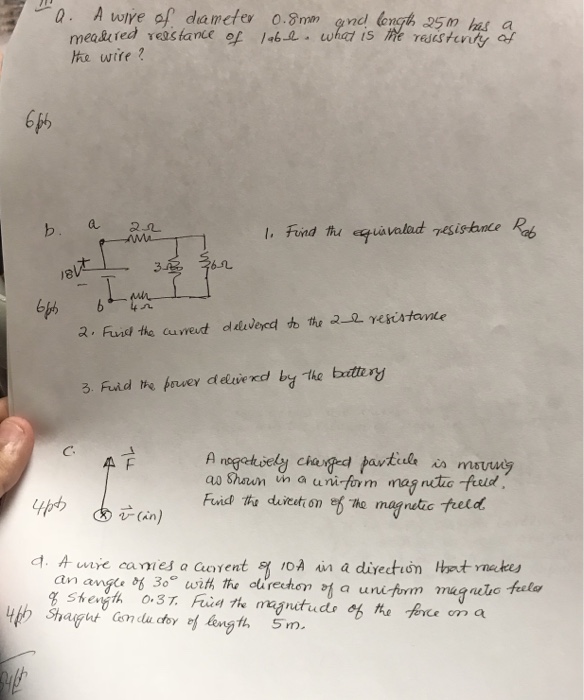 a. A wire of diameter 0.8mm and length 25m has a
measured resistance of 1.6Ω. what is the resistivity of
the wire?
6pts
b. a 2Ω
18V + - 3Ω 6Ω
b 4Ω
1. Find the equivalent resistance Rab
6pts
2. Find the current delivered to the 2Ω resistance
3. Find the power delivered by the battery
c. F
v (in)
4pts
A negatively charged particle is moving
as shown in a uniform magnetic field.
Find the direction of the magnetic field
d. A wire carries a current of 10A in a direction that makes
an angle of 30° with the direction of a uniform magnetic field
of strength 0.3T. Find the magnitude of the force on a
4pts straight conductor of length 5m.